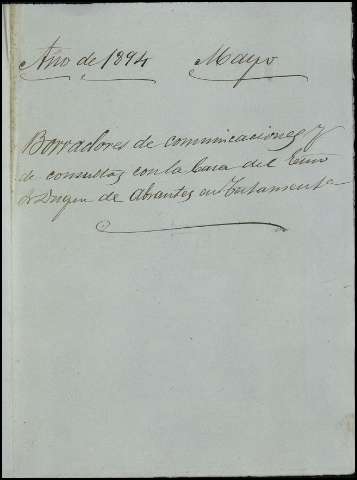 Año de 1894 Mayo
Borradores de comunicaciones y
de consultas con la Casa del Exmo
Sr Duque de Abrantes su Testamentª